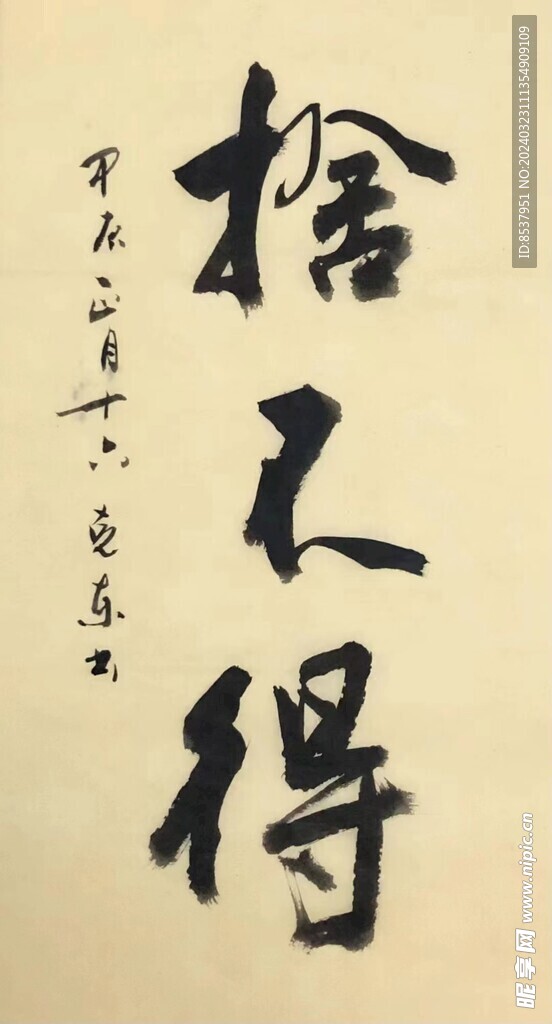 捨不得
甲辰正月十六克東书
ID:8537951 NO:20240323111354909109
昵享网 www.nipic.cn